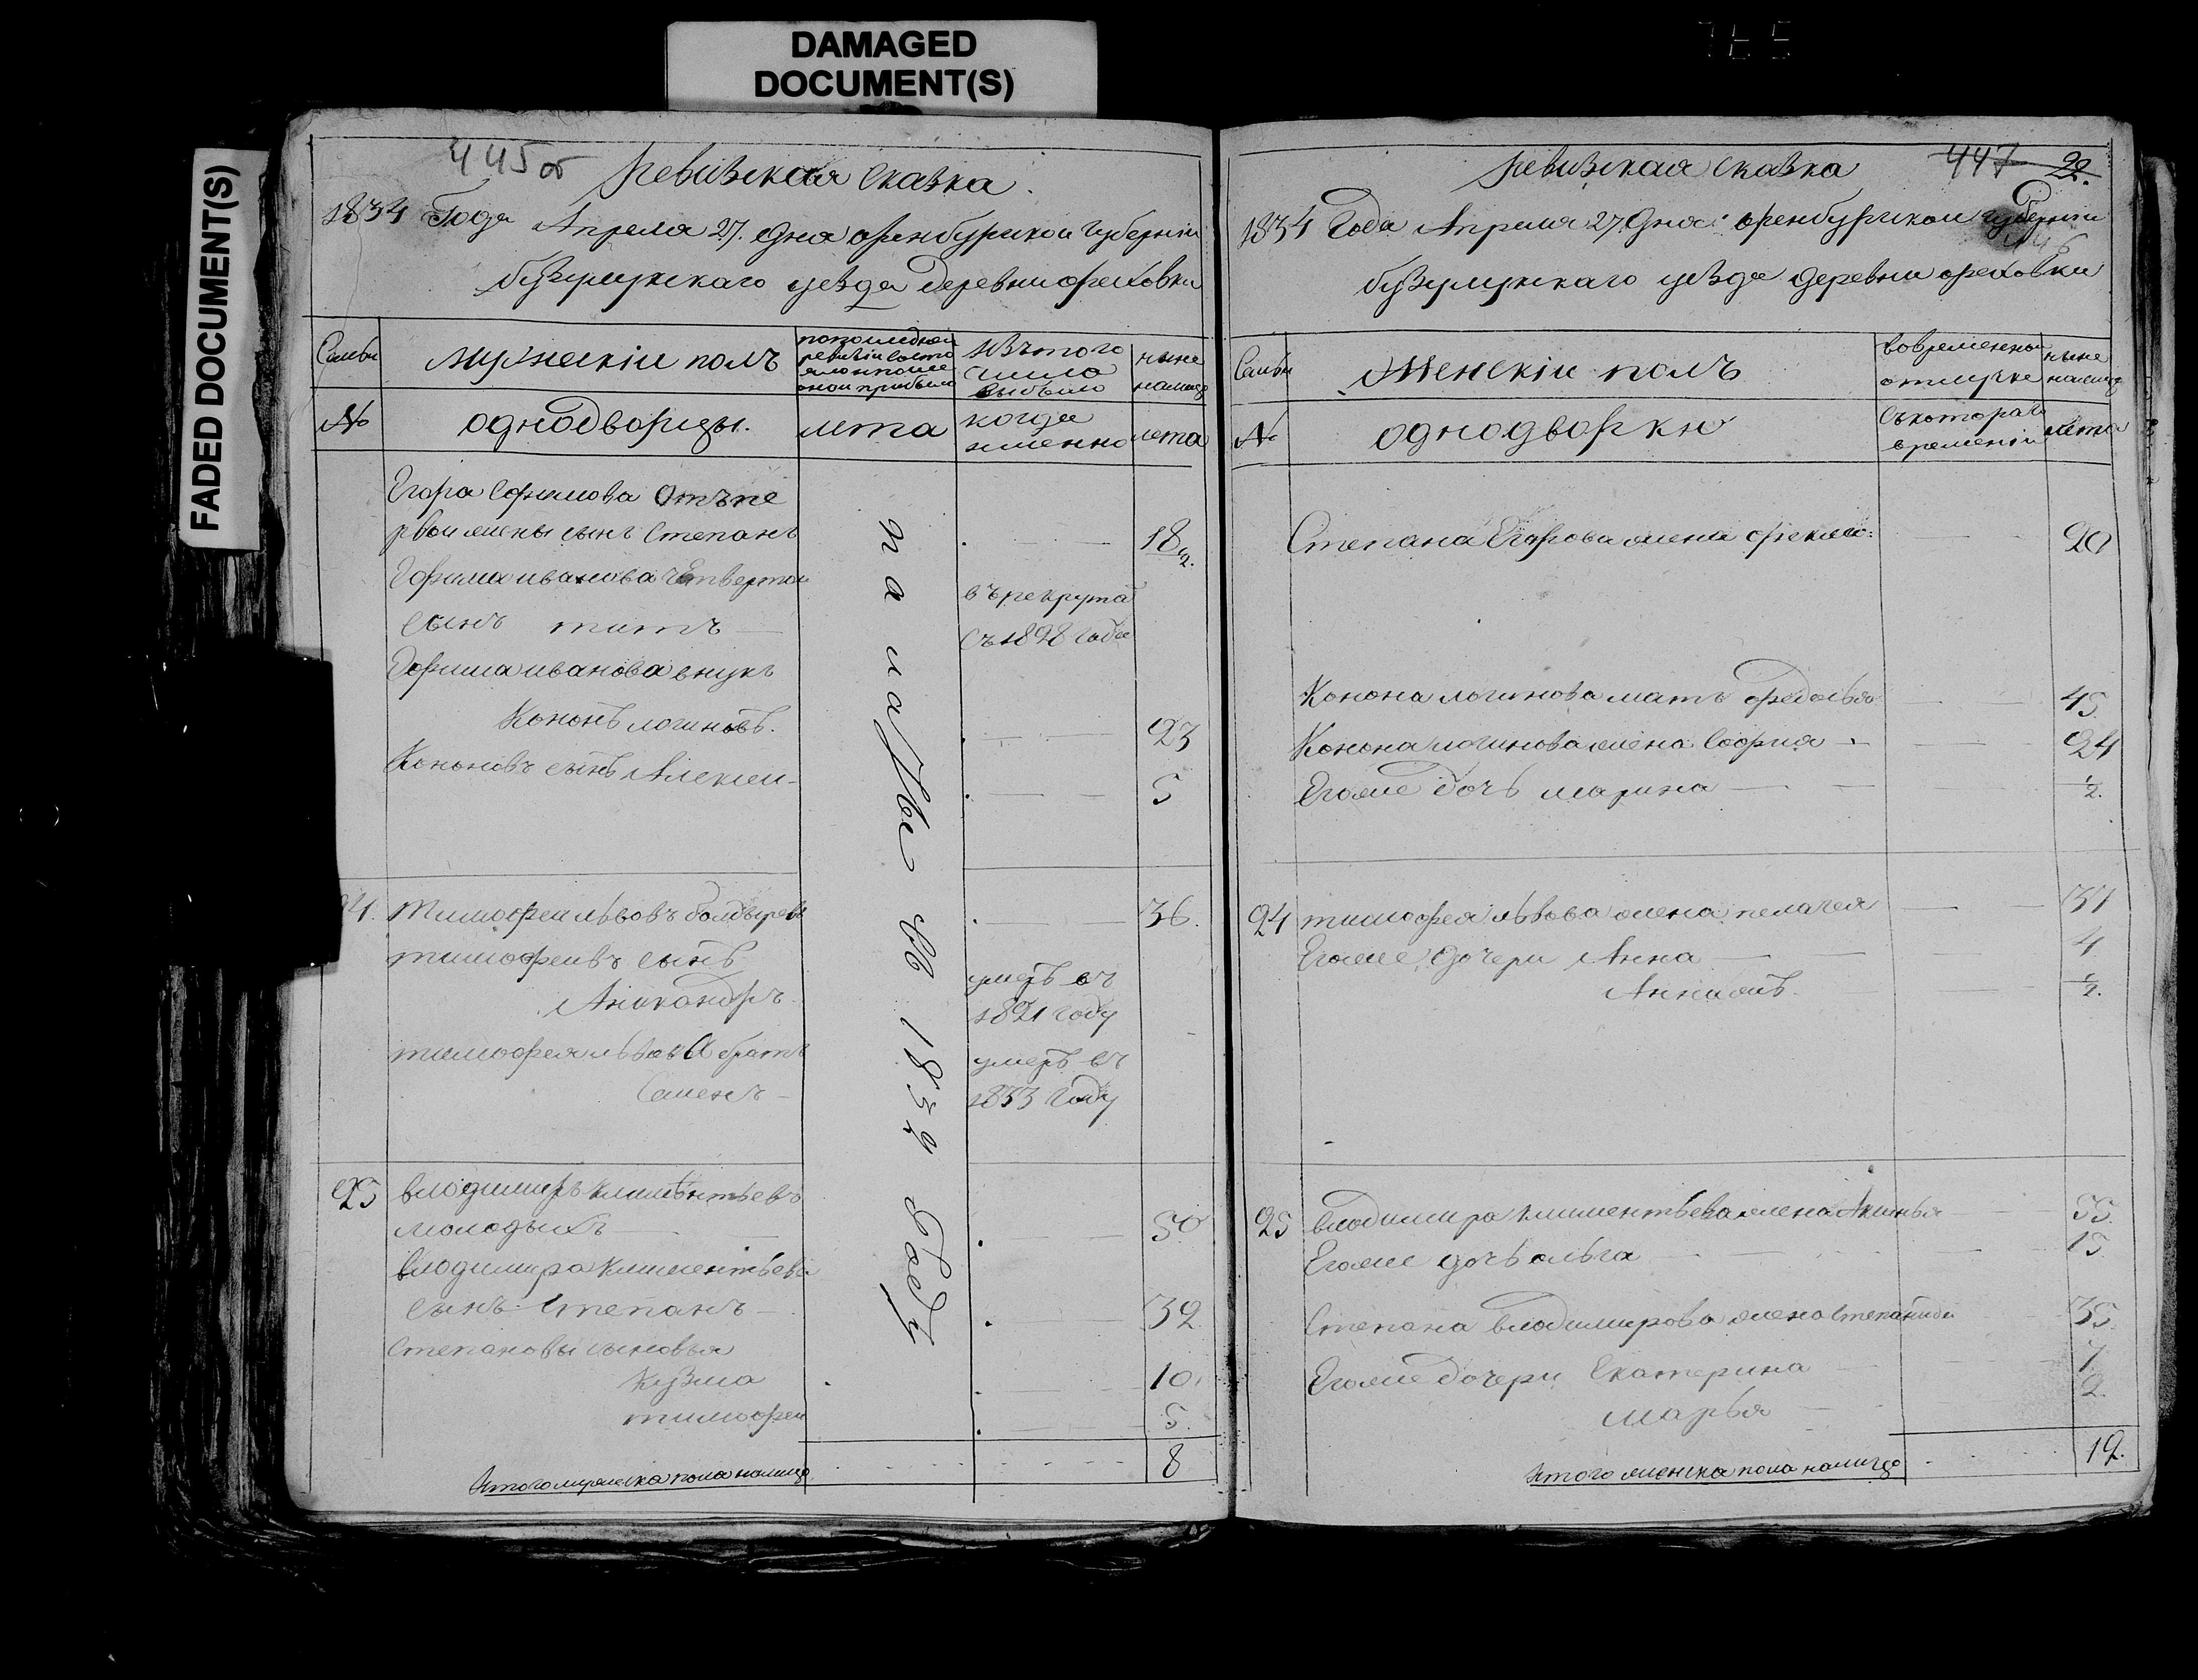 DAMAGED
DOCUMENT(S)
FADED DOCUMENT(S)
445 об
Ревизская Сказка.
1834 Года Апреля 27. дня оренбургской губернии
бузулукскаго уезда деревни ореховки
Семьи
мужескiи полъ
изътого
число
выбыло
ныне
налицо
№
однодворцы.
лета
когда
именно
лета
Егора Софимова Отъпе
рвои жены сынъ Степанъ
18 1/2.
иванова четвертои
сынъ титъ
въ рекрута
съ 1828 года
иванова внукъ
Кононъ логиновъ.
23
Кононовъ сынъ Алексеи
5
прибыли въ 1832 Году
24. Тимофеи львовъ болдыревъ
36.
тимофеивъ сынъ
Александръ
умеръ въ
1821 году
тимофея львова братъ
Семенъ
умеръ въ
1833 Году
25 владимиръ климентьевъ
молодыхъ
50
владимира климентьева
сынъ Степанъ
32
Степановы сыновья
Кузма
10.
тимофеи
5.
Итого мужеска пола налицо
8
Ревизская сказка
447
22.
1834 Года Апреля 27 дня оренбургскои губернiи
бузулукскаго уезда деревни ореховки
Семьи
Женскiи полъ
вовременнои
отлучке
ныне
налицо
№
однодворки
съкотораго
времени
лета
Степана Егорова жена
20
Конона логинова мать федосья
45
Конона логинова жена София
24
Егоже дочь марина
1/2.
24 тимофея львова жена пелагея
31
Егоже дочери Анна
4
1/2.
25 владимира климентьева жена Акинья
55.
Егоже дочь ольга
15
Степана владимирова жена Степанида
35.
Егоже дочери Екатерина
7.
марья
2.
Итого женска пола налицо
12.